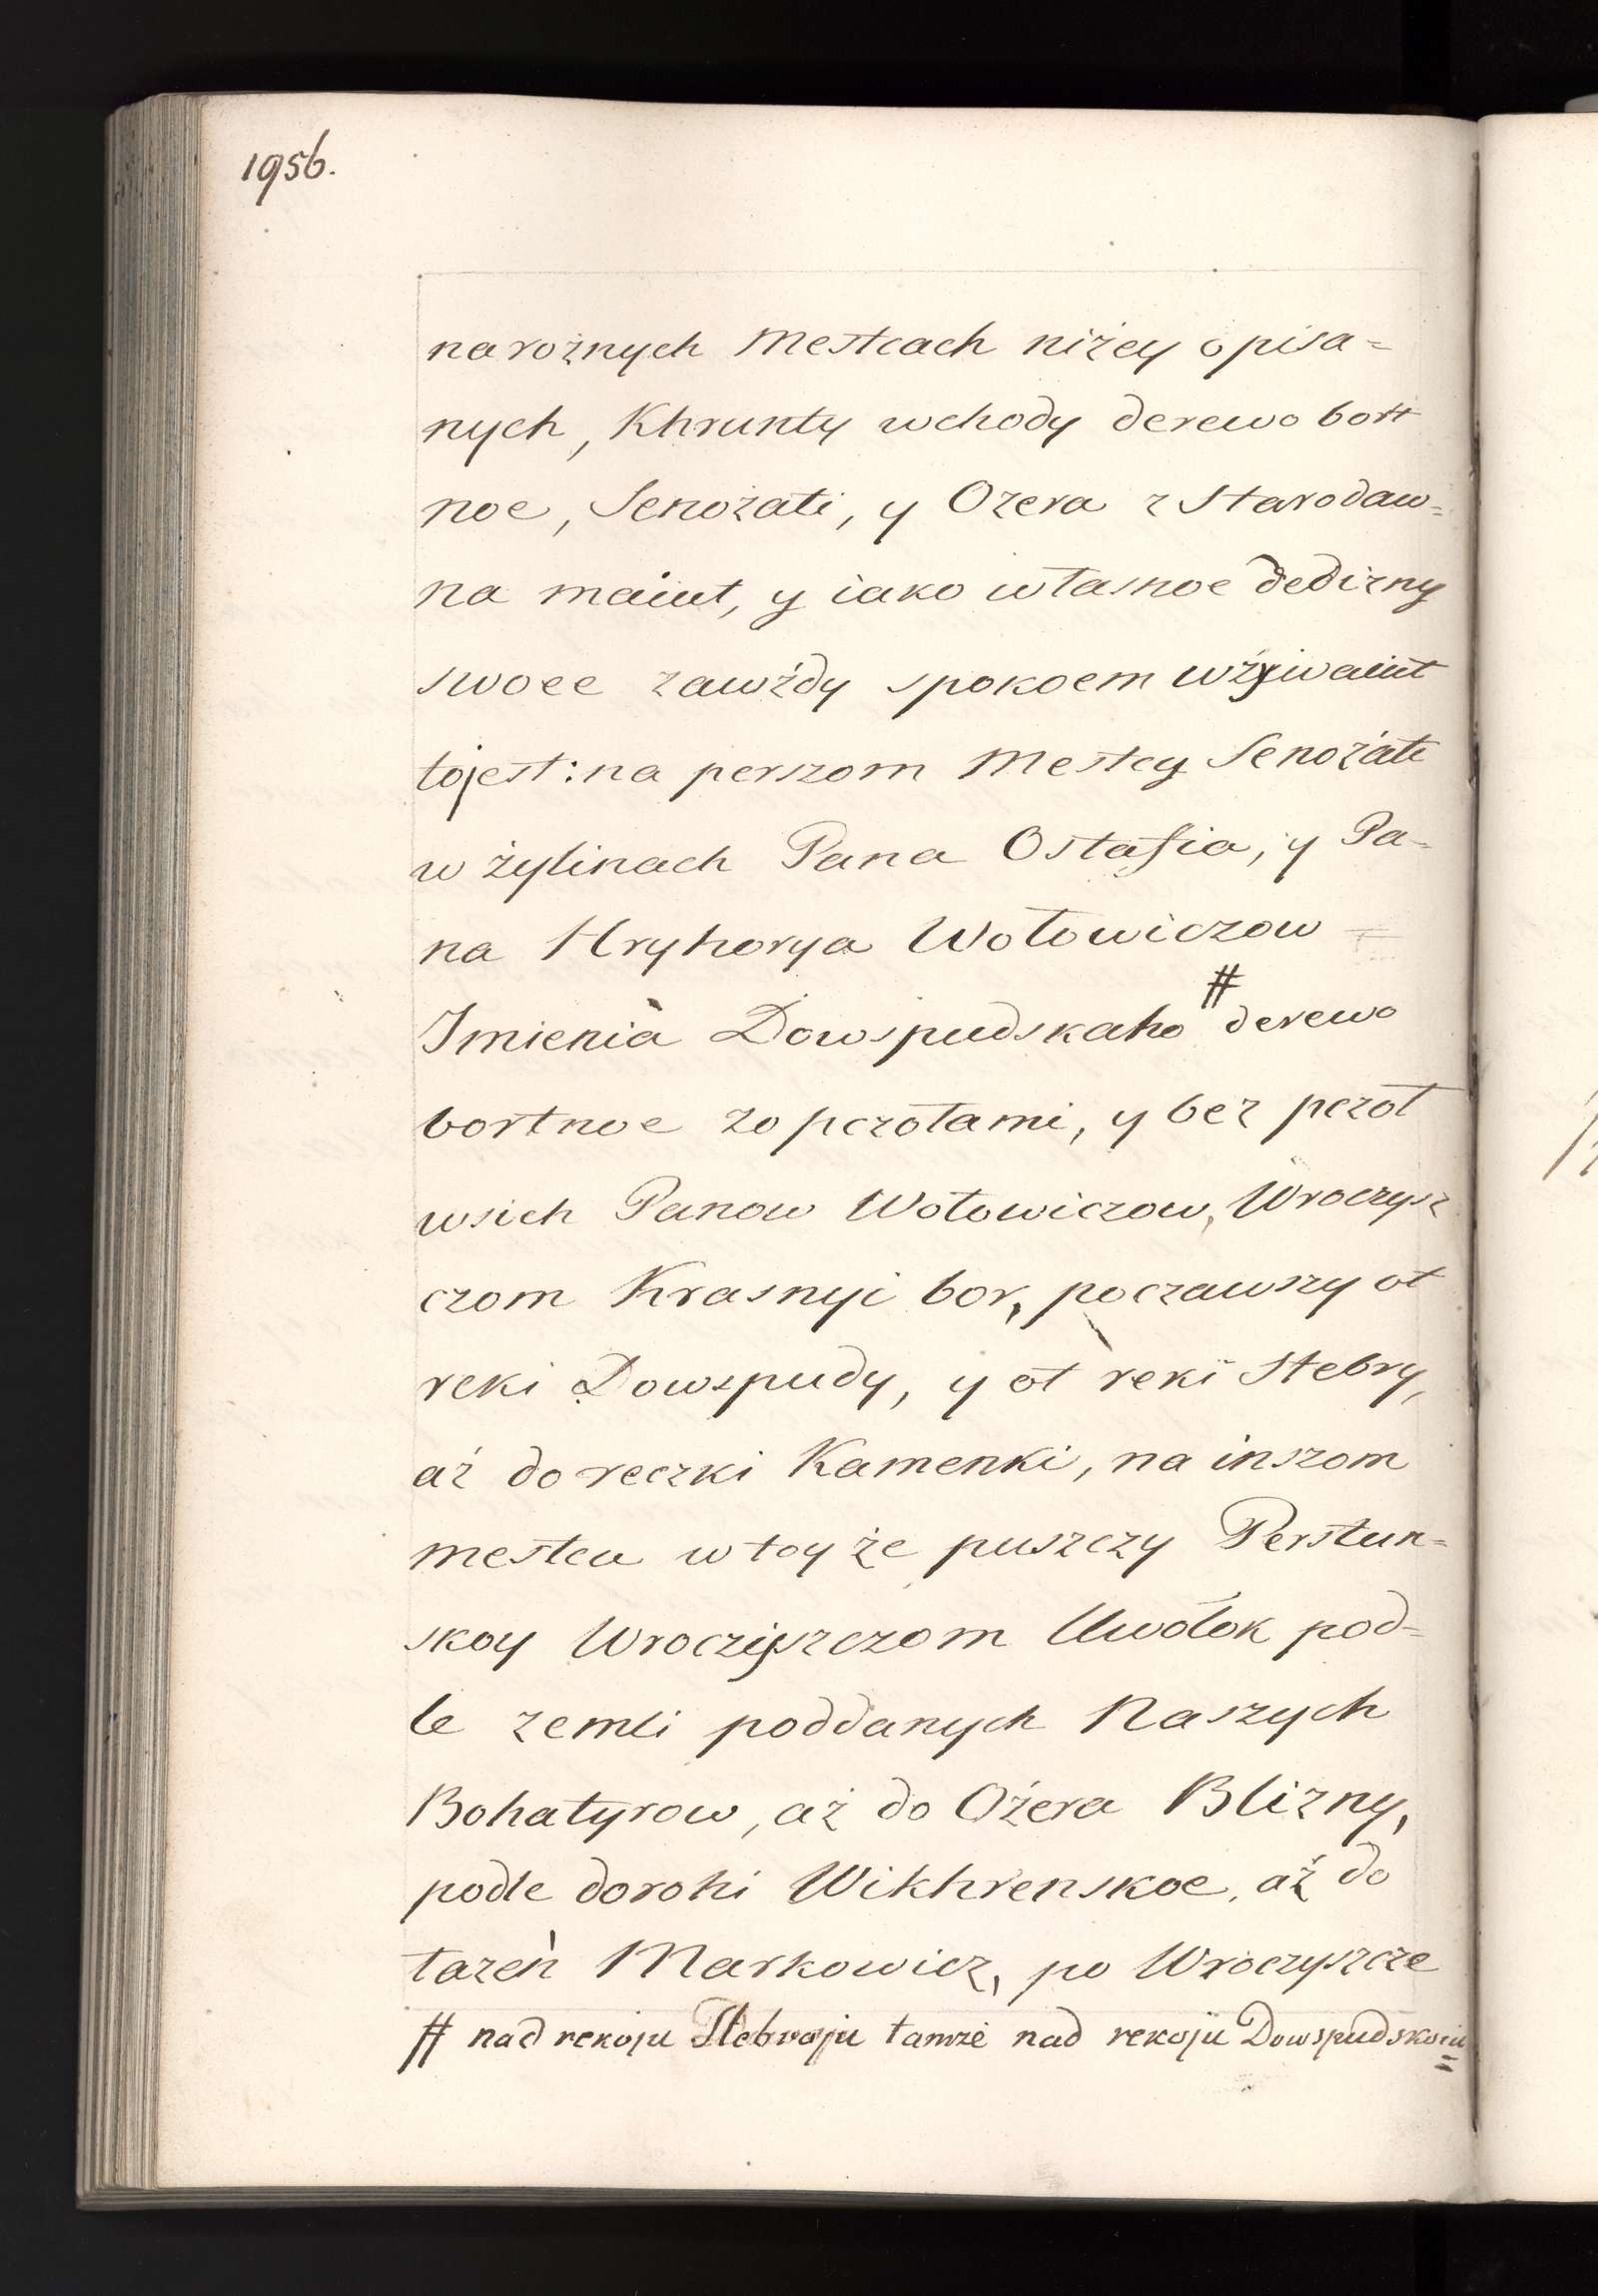 1956.
na rożnych Mestcach niżey opisa=
nych, Khrunty wchody derewo bort
noe, Senożati, y Ozera z Starodaw=
na maiut, y iako własnoe dedizny
swoee zawżdy spokoem wżywaiut
tojest: na perszom Mestcy Senożati
w żylinach Pana Ostafia, y Pa-
na Hryhorya Wołowiczow
Imienia Dowspudskaho # derewo
bortnoe zo pczołami, y bez pczoł
wsich Panow Wołowiczow, Wroczysz
czom Krasnyi bor, poczawszy ot
reki Dowspudy, y ot reki Stebry,
aż do reczki Kamenki, na inszom
mestcu w toy że puszczy Perstun=
skoy Wroczyszczom Uwołok pod=
le zemli poddanych Naszych
Bohatyrow, aż do Ożera Blizny,
podle dorohi Wikhrenskoe, aż do
łazeń Markowicz, po Wroczyszcze
# nad rekoju Stebroju tamże nad rekoju Dowspudskoiu